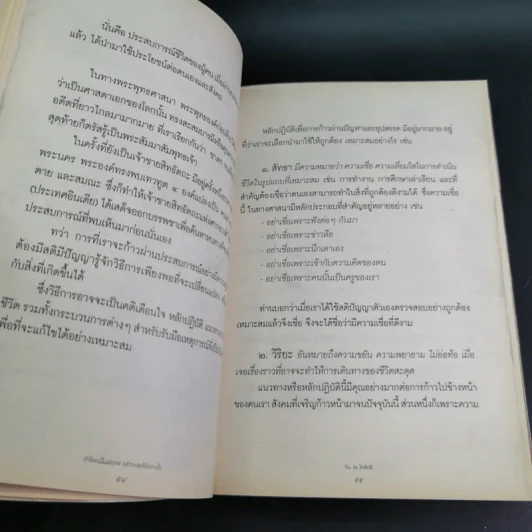 นั่นคือ ประสบการณ์ชีวิตของผู้คน เมื่อ
แล้ว ได้นำมาใช้ประโยชน์ต่อตนเองและสังคม
ในทางพระพุทธศาสนา พระพุทธองค์
ว่าเป็นศาสดาเอกของโลกนั้น ทรงสะสมบารมี
อดีตที่ยาวไกลมามากมาย ที่เราเรียกกันว่า
สุดท้ายก็ตรัสรู้เป็นพระสัมมาสัมพุทธเจ้า
ในครั้งที่ยังเป็นเจ้าชายสิทธัตถะ
พระนคร พระองค์ทรงพบเทวทูต ๔
ตาย และสมณะ ซึ่งก็ทำให้เจ้าชายสิทธัตถะ
(ประเทศอินเดีย) ได้เสด็จออกบรรพชาเพื่อค้นหา
ประสบการณ์ที่พบเห็นมาก่อนนั่นเอง
ทว่า การที่เราจะก้าวผ่านประสบการณ์
ต้องมีสติมีปัญญารู้จักวิธีการเพียงพอที่จะเปลี่ยนแปลง
กับสิ่งที่เกิดขึ้นได้
ซึ่งวิธีการอาจจะเป็นคติเตือนใจ หลักปฏิบัติ
ชีวิต รวมทั้งกระบวนการต่างๆ สำหรับรับมือเหตุการณ์
เพื่อที่จะแก้ไขได้อย่างเหมาะสม
๕๔
หลักปฏิบัติเพื่อการก้าวผ่านปัญหาและอุปสรรค มีอยู่มากมาย อยู่
ที่ว่าเราจะเลือกนำมาใช้ให้ถูกต้อง เหมาะสมอย่างไร เช่น
๑. สัทธา มีความหมายว่า ความเชื่อ ความเลื่อมใสในการดำเนิน
ชีวิตในรูปแบบที่เหมาะสม เช่น การทำงาน การศึกษาเล่าเรียน และที่
สำคัญต้องเชื่อว่าตนเองสามารถทำในสิ่งที่ถูกต้องดีงามได้ ซึ่งความเชื่อ
นี้ ในทางศาสนามีหลักประกอบที่สำคัญอยู่หลายอย่าง เช่น
- อย่าเชื่อเพราะฟังต่อๆ กันมา
- อย่าเชื่อเพราะข่าวลือ
- อย่าเชื่อเพราะนึกเดาเอง
- อย่าเชื่อเพราะเข้ากับความคิดของตน
- อย่าเชื่อเพราะคนนั้นเป็นครูของเรา
ท่านบอกว่าเมื่อเราได้ใช้สติปัญญาตัวเองตรวจสอบอย่างถูกต้อง
เหมาะสมแล้วจึงเชื่อ จึงจะได้ชื่อว่ามีความเชื่อที่ดีงาม
๒. วิริยะ อันหมายถึงความขยัน ความพยายาม ไม่ย่อท้อ เมื่อ
เจอเรื่องราวที่อาจจะทำให้การเดินทางของชีวิตสะดุด
แนวทางหรือหลักปฏิบัตินี้มีคุณอย่างมากต่อการก้าวไปข้างหน้า
ของคนเรา สังคมที่เจริญก้าวหน้ามาจนปัจจุบันนี้ ส่วนหนึ่งก็เพราะความ
๕๕